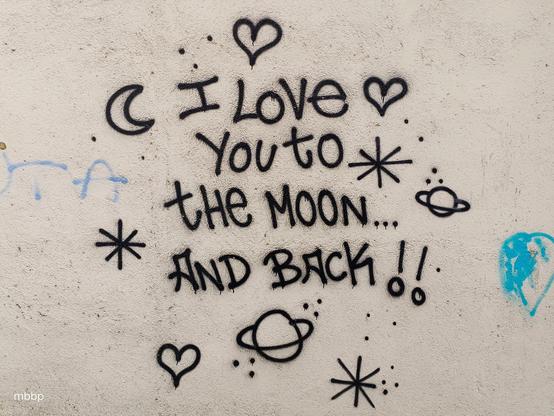 I LOVE
YOU to
tHE MOON...
AND BACK!!
TA
mbbp